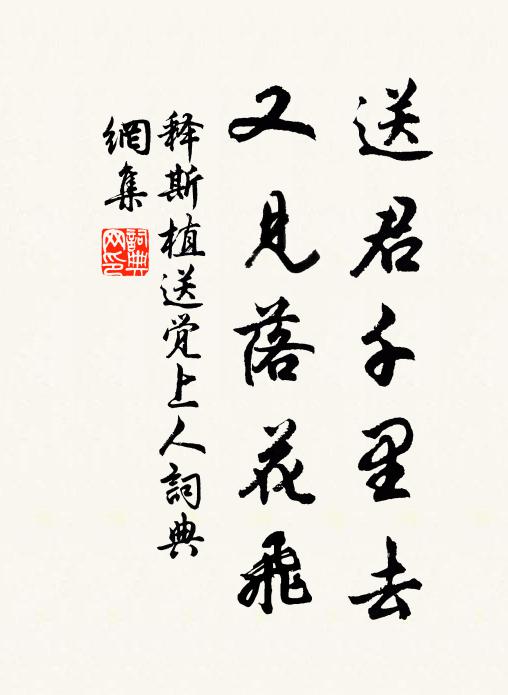 送君千里去
又見落花飛
释斯植送覺上人詞典
網集
詞典
网印